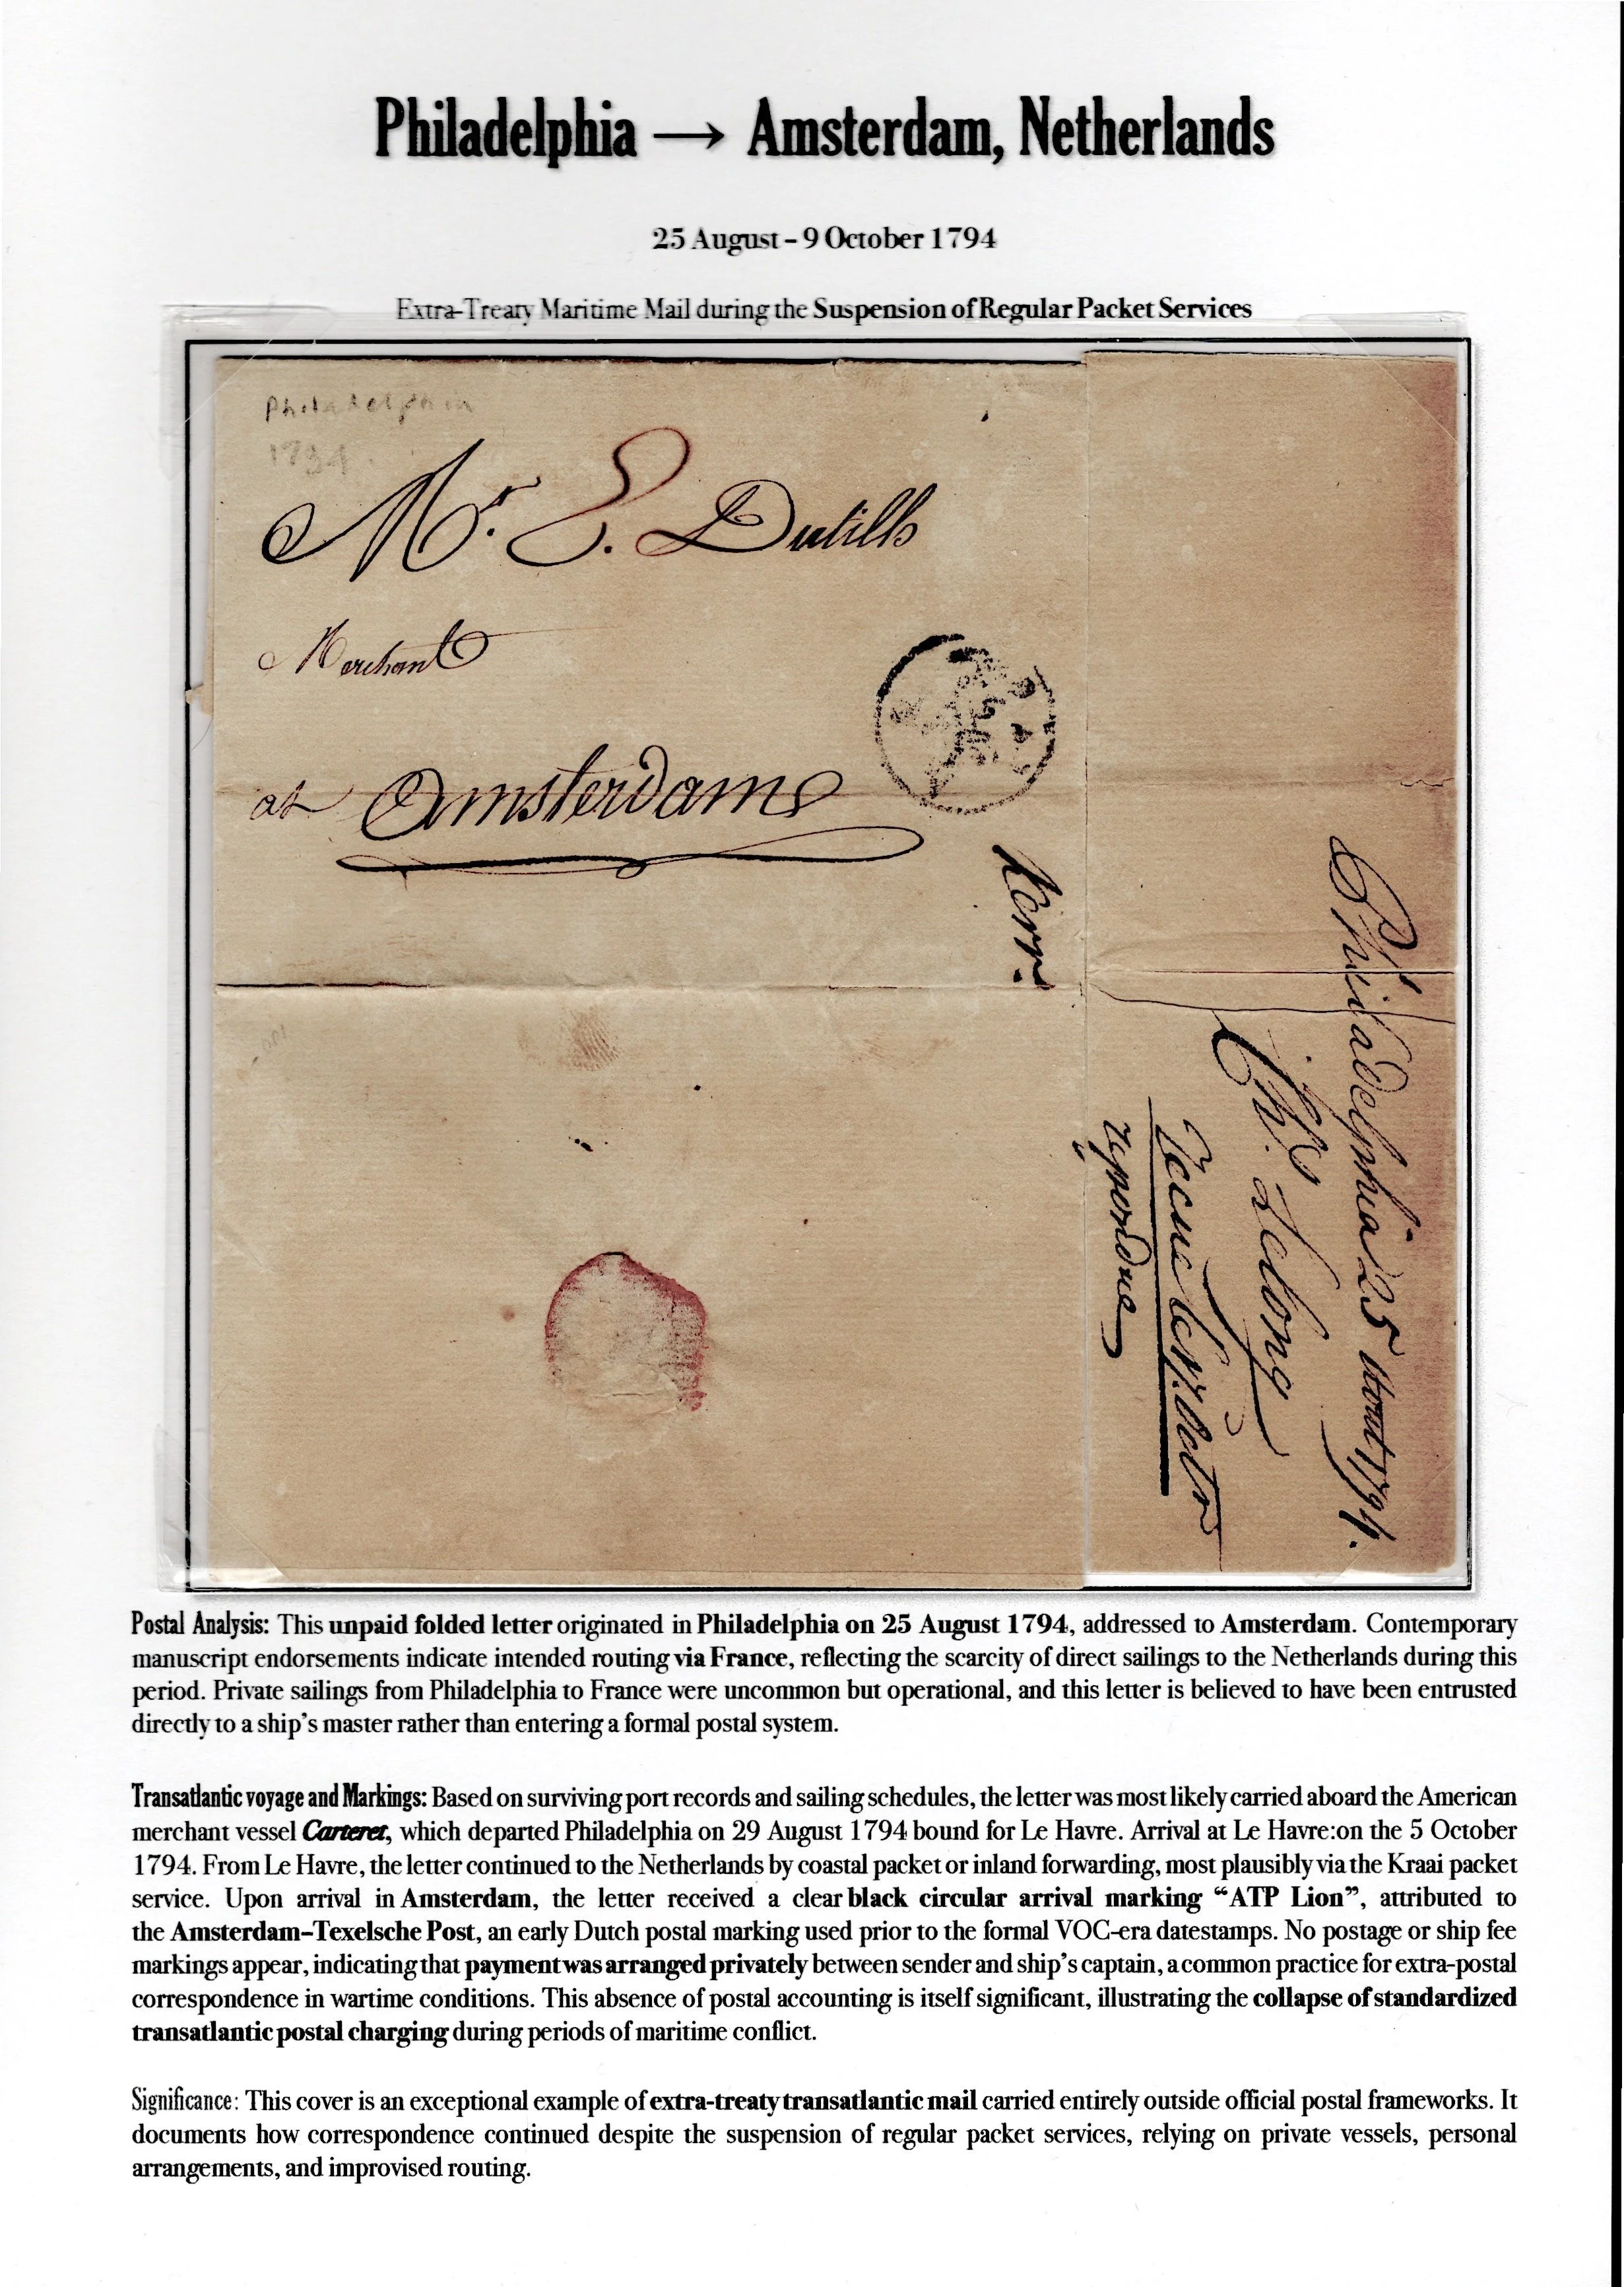 Philadelphia → Amsterdam, Netherlands
25 August – 9 October 1794
Extra-Treaty Maritime Mail during the Suspension of Regular Packet Services
Philadelphia
1794.
Mr. E. Dutilh
Merchant
at Amsterdam
Philadelphia 25 Aout 1794.
Ch. Lelong
repondre
Postal Analysis: This unpaid folded letter originated in Philadelphia on 25 August 1794, addressed to Amsterdam. Contemporary
manuscript endorsements indicate intended routing via France, reflecting the scarcity of direct sailings to the Netherlands during this
period. Private sailings from Philadelphia to France were uncommon but operational, and this letter is believed to have been entrusted
directly to a ship's master rather than entering a formal postal system.
Transatlantic voyage and Markings: Based on surviving port records and sailing schedules, the letter was most likely carried aboard the American
merchant vessel Carteret, which departed Philadelphia on 29 August 1794 bound for Le Havre. Arrival at Le Havre:on the 5 October
1794. From Le Havre, the letter continued to the Netherlands by coastal packet or inland forwarding, most plausibly via the Kraai packet
service. Upon arrival in Amsterdam, the letter received a clear black circular arrival marking “ATP Lion”, attributed to
the Amsterdam–Texelsche Post, an early Dutch postal marking used prior to the formal VOC-era datestamps. No postage or ship fee
markings appear, indicating that payment was arranged privately between sender and ship's captain, a common practice for extra-postal
correspondence in wartime conditions. This absence of postal accounting is itself significant, illustrating the collapse of standardized
transatlantic postal charging during periods of maritime conflict.
Significance: This cover is an exceptional example of extra-treaty transatlantic mail carried entirely outside official postal frameworks. It
documents how correspondence continued despite the suspension of regular packet services, relying on private vessels, personal
arrangements, and improvised routing.